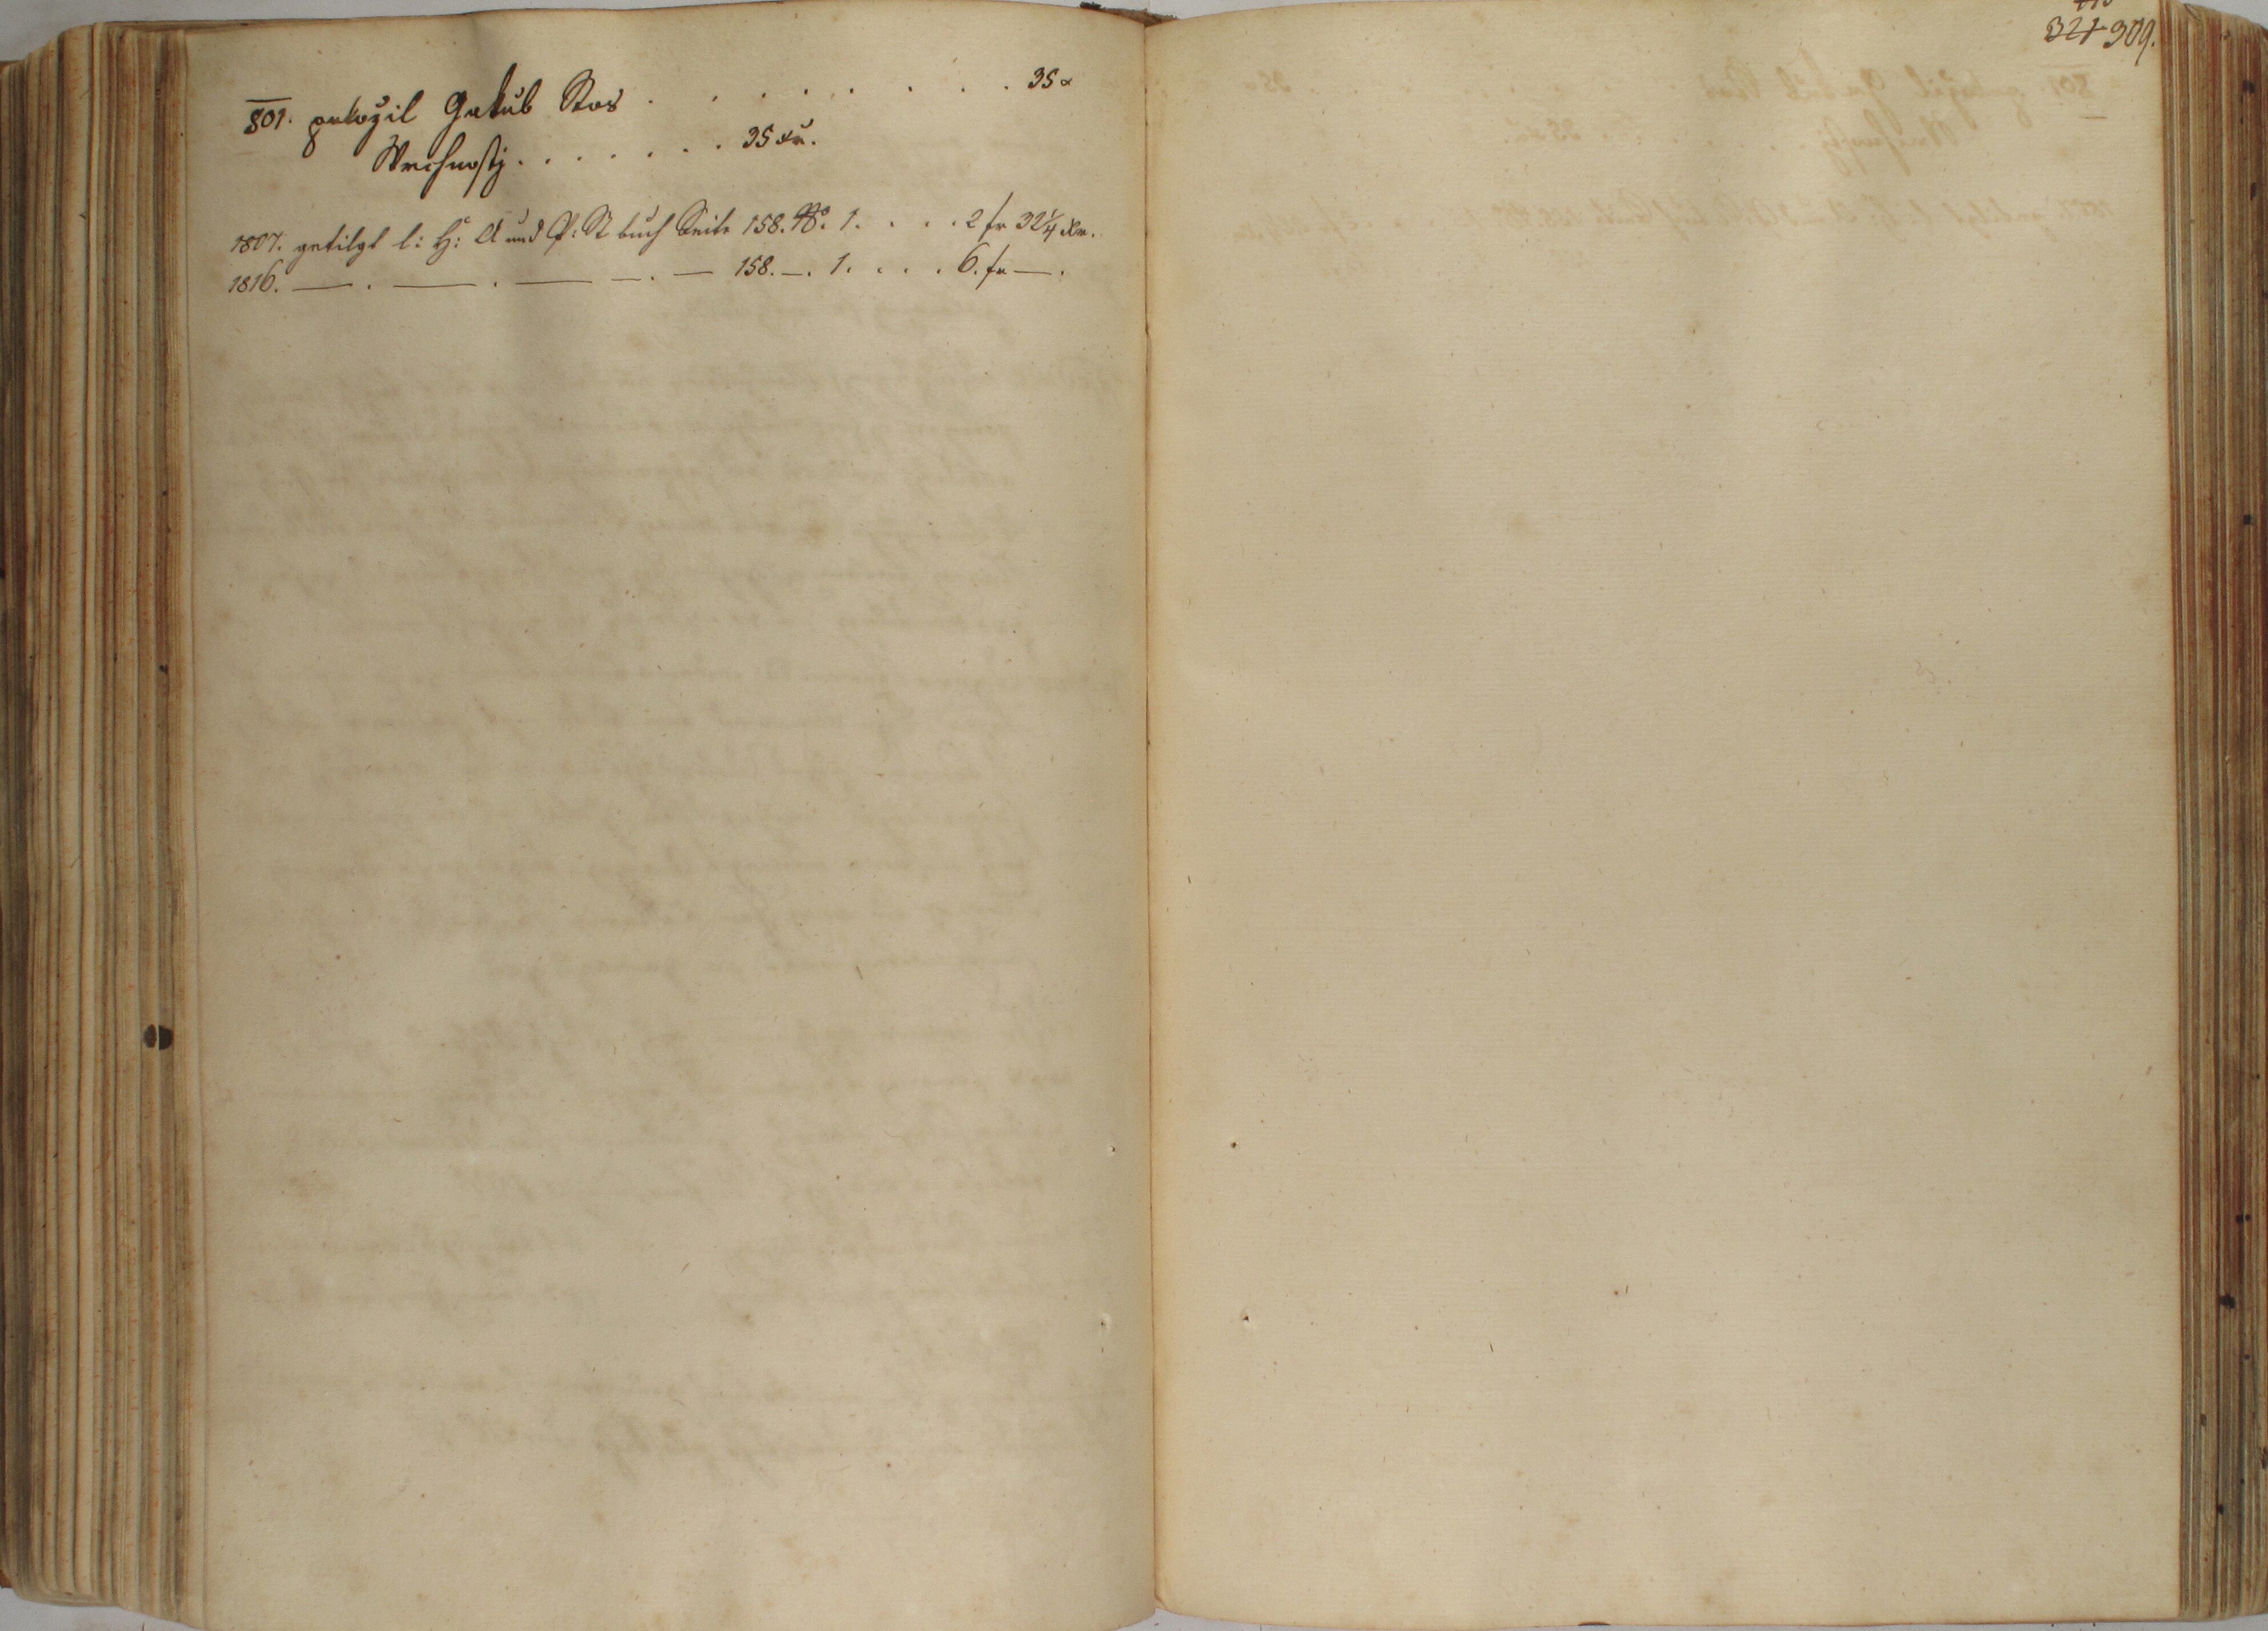 801. položil Jakub Kos . . . . . . . . . 35 x
Vrchnosti . . . . . . . 35 xr.
1807. getilgt l: H: A und P: St buch Seite 158. No. 1. . . . . 2 fr 32 1/4 Xr.
1816. — . — . — — . — 158. —. 1. . . . . 6. fr — .
321 309.